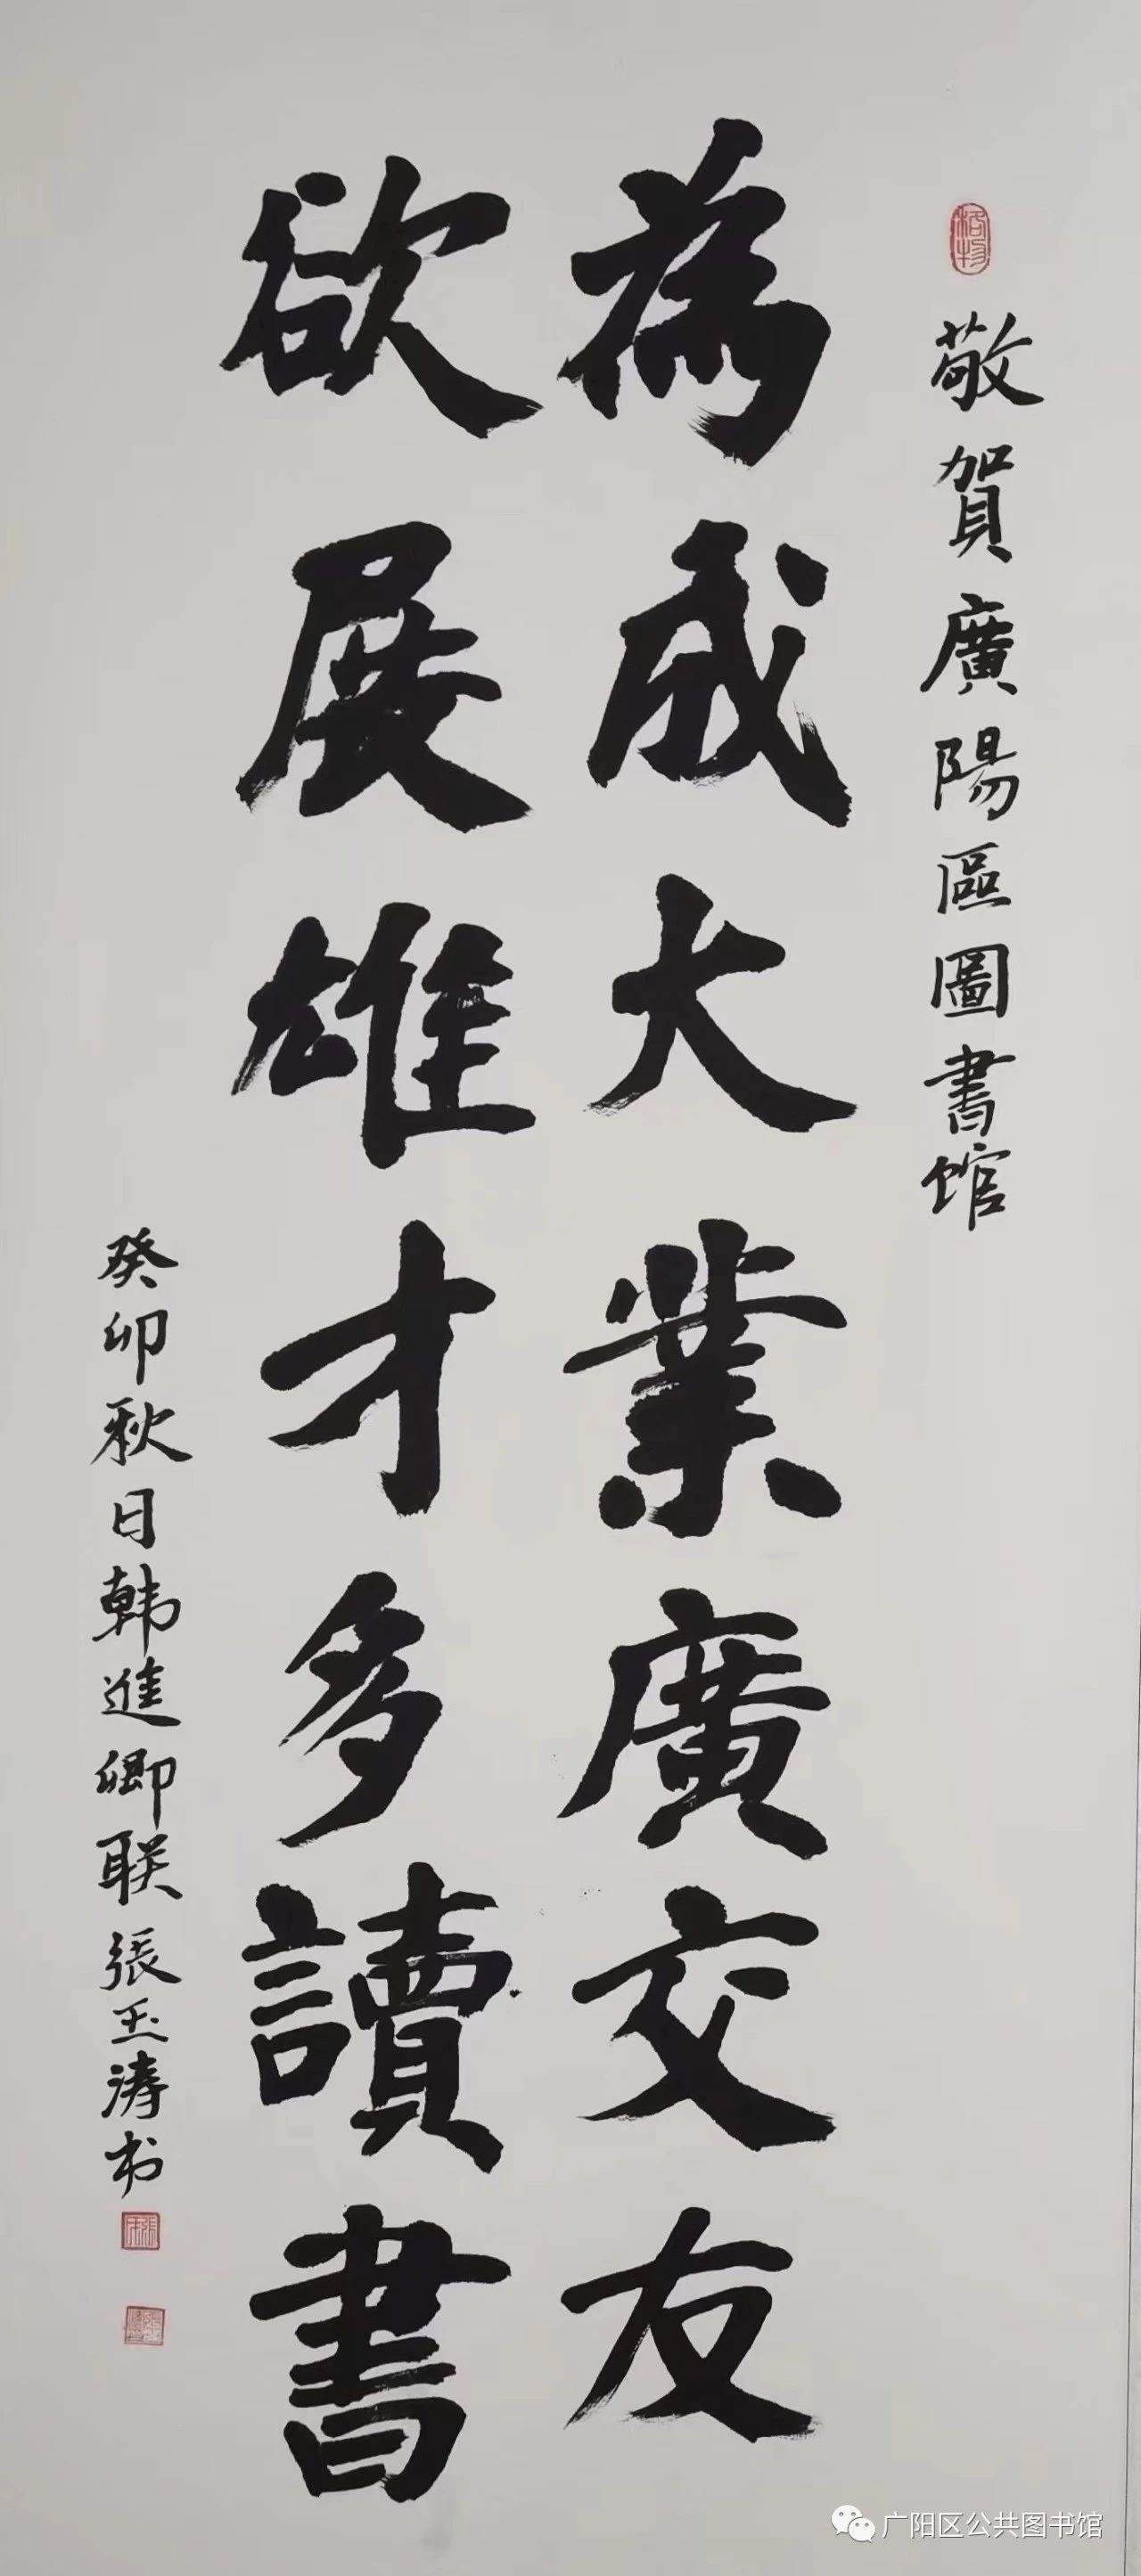 格物
敬賀廣陽區圖書馆
為成大業廣交友
欲展雄才多讀書
癸卯秋日韩進卿联張玉涛书
广阳区公共图书馆